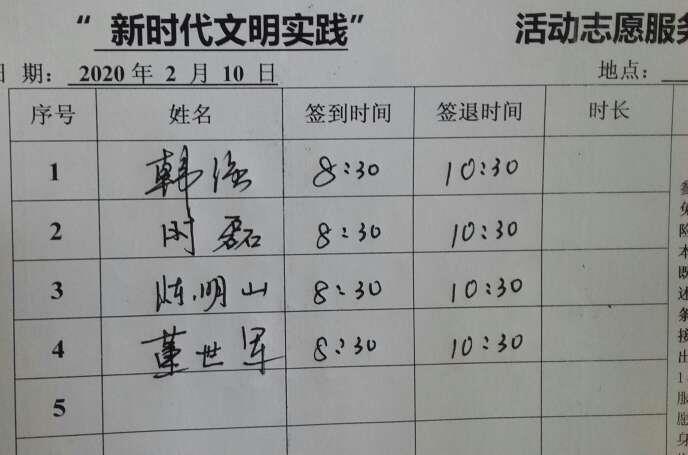 “ 新时代文明实践” 活动志愿服务
日 期： 2020 年 2 月 10 日 地点：
序号 姓名 签到时间 签退时间 时长
1 韩强 8:30 10:30
2 时磊 8:30 10:30
3 陈明山 8:30 10:30
4 董世军 8:30 10:30
5
免
除
本
既
述
条
接
出
1
服
愿
身